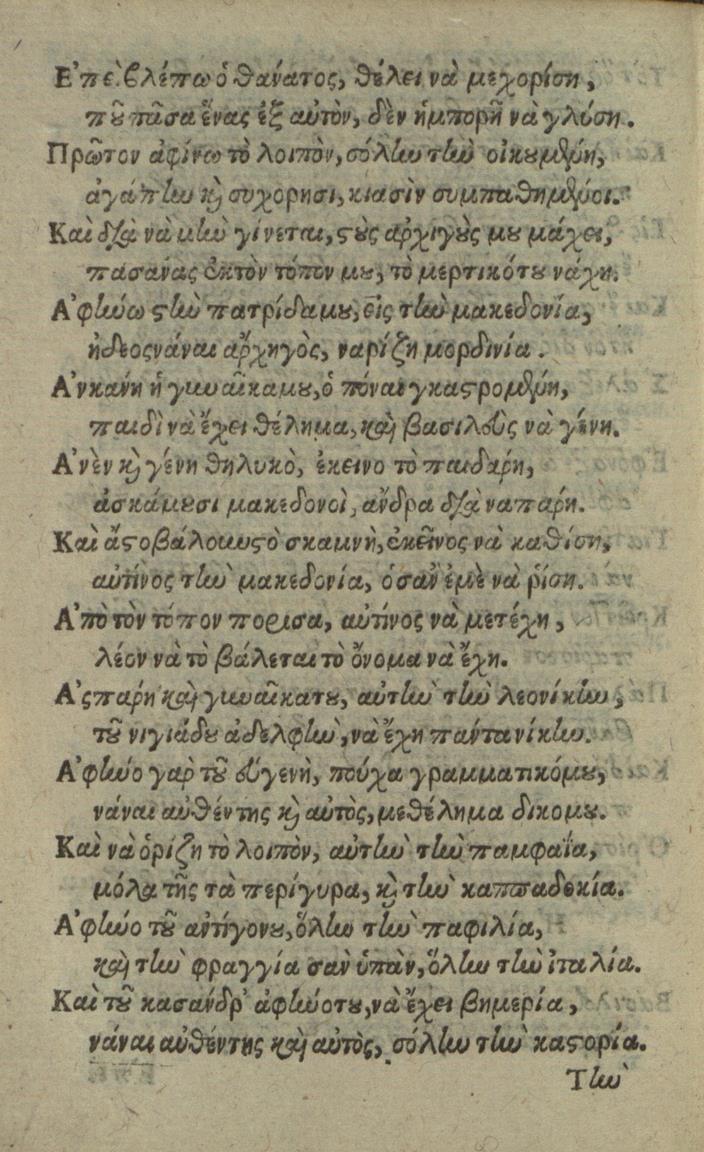 Ε'πεὶ βλέπω ὁ θάνατος, θέλει νὰ μεχορίση,
ποῦ πᾶσα ἕνας ἐξ αὐτὸν, δὲν ἡμπορῆ νὰ γλύση.
Πρῶτον ἀφίνω τὸ λοιπὸν, σόλην τὴν οἰκουμένη,
ἀγάπην καὶ συχορησι, κιασὶν συμπαθημένοι.
Καὶ διὰ νὰ μὴν γίνεται, στοὺς ἀρχιγοὺς μου μάχει,
πασάνας ἐκτὸν τόπον μου, τὸ μερτικότου νάχη.
Α'φήνω στὴν πατρίδαμου, εἰς τὴν μακεδονία,
ἠδεοςνάναι ἄρχηγὸς, ναρίζη μορδινία.
Α'νκανη ἡ γυναῖκαμου, ὁ πόναι γκαστρομένη,
παιδὶ νὰ ἔχει θέλημα, καὶ βασιλεὺς νὰ γένη.
Α'νὲν καὶ γένη θηλυκὸ, ἐκεινο τὸ παιδάρη,
ἀσκάμουσι μακεδονοὶ, ἄνδρα διὰ ναπάρη.
Καὶ ἄςτοβάλουν στὸ σκαμνὴ, ἐκεῖνος νὰ καθίση,
αὐτῖνος τὴν μακεδονία, ὁσαν ἐμὲ νὰ ῥίση.
Α'πὸ τὸν τόπον πορισα, αὐτίνος νὰ μετέχη,
λέον νὰ τὸ βάλεται τὸ ὄνομα νὰ ἔχη.
Α'ςπαρη καὶ γυναῖκατου, αὐτὴν τὴν λεονίκην,
τοῦ νιγιάδου ἀδελφὴν, νὰ ἔχη πάντανίκην.
Α'φήνο γαρ τοῦ εὐγενὴ, πούχα γραμματικόμου,
νάναι αὐθέντης καὶ αὐτὸς, μεθέλημα δικομου.
Καὶ νὰ ὁρίζη τὸ λοιπὸν, αὐτὴν τὴν παμφαΐα,
μόλα τῆς τὰ περίγυρα, καὶ τὴν καππαδοκία.
Α'φήνο τοῦ αντίγονου, ὅλην τὴν παφιλία,
καὶ τὴν φραγγία σαν ὑπὰν, ὅλην τὴν ἰταλία.
Καὶ τοῦ κασάνδρ' ἀφήνοτου, νὰ ἔχει βημερία,
νάναι αὐθέντης καὶ αὐτὸς, σόλην τὴν καστορία.
Τὴν